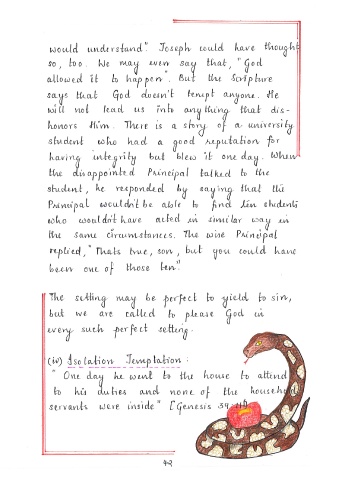 would understand". Joseph could have thought
so, too. We may even say that, "God
allowed it to happen". But the Scripture
says that God doesn't tempt anyone. He
will not lead us into anything that dis-
honors Him. There is a story of a university
student who had a good reputation for
having integrity but blew it one day. When
the disappointed Principal talked to the
student, he responded by saying that the
Principal wouldn't be able to find ten students
who wouldn't have acted in similar way in
the same circumstances. The wise Principal
replied, "Thats true, son, but you could have
been one of those ten".
The setting may be perfect to yield to sin,
but we are called to please God in
every such perfect setting.
(iv) Isolation Temptation :
" One day he went to the house to attend
to his duties and none of the household
servants were inside" [Genesis 39:11]
42